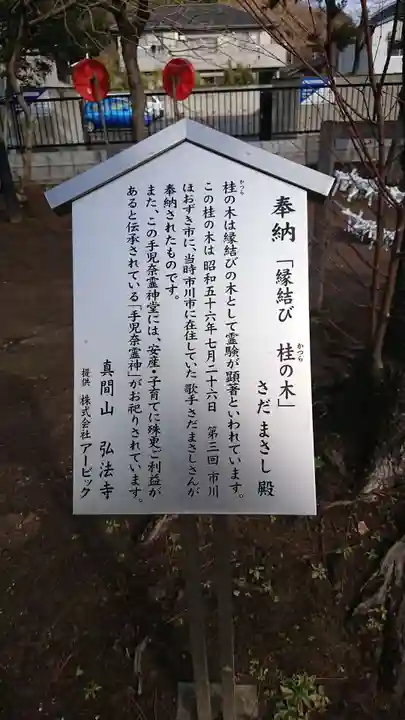 奉納 「縁結び 桂の木」
かつら
さだまさし殿
桂の木は縁結びの木として霊験が顕著といわれています。
かつら
この桂の木は 昭和五十六年七月二十六日 第三回 市川
ほおずき市に、当時市川市に在住していた 歌手さだまさしさんが
奉納されたものです。
また、この手児奈霊神堂には、安産・子育てに殊更ご利益が
あると伝承されている「手児奈霊神」がお祀りされています。
真間山 弘法寺
提供 株式会社 アービック